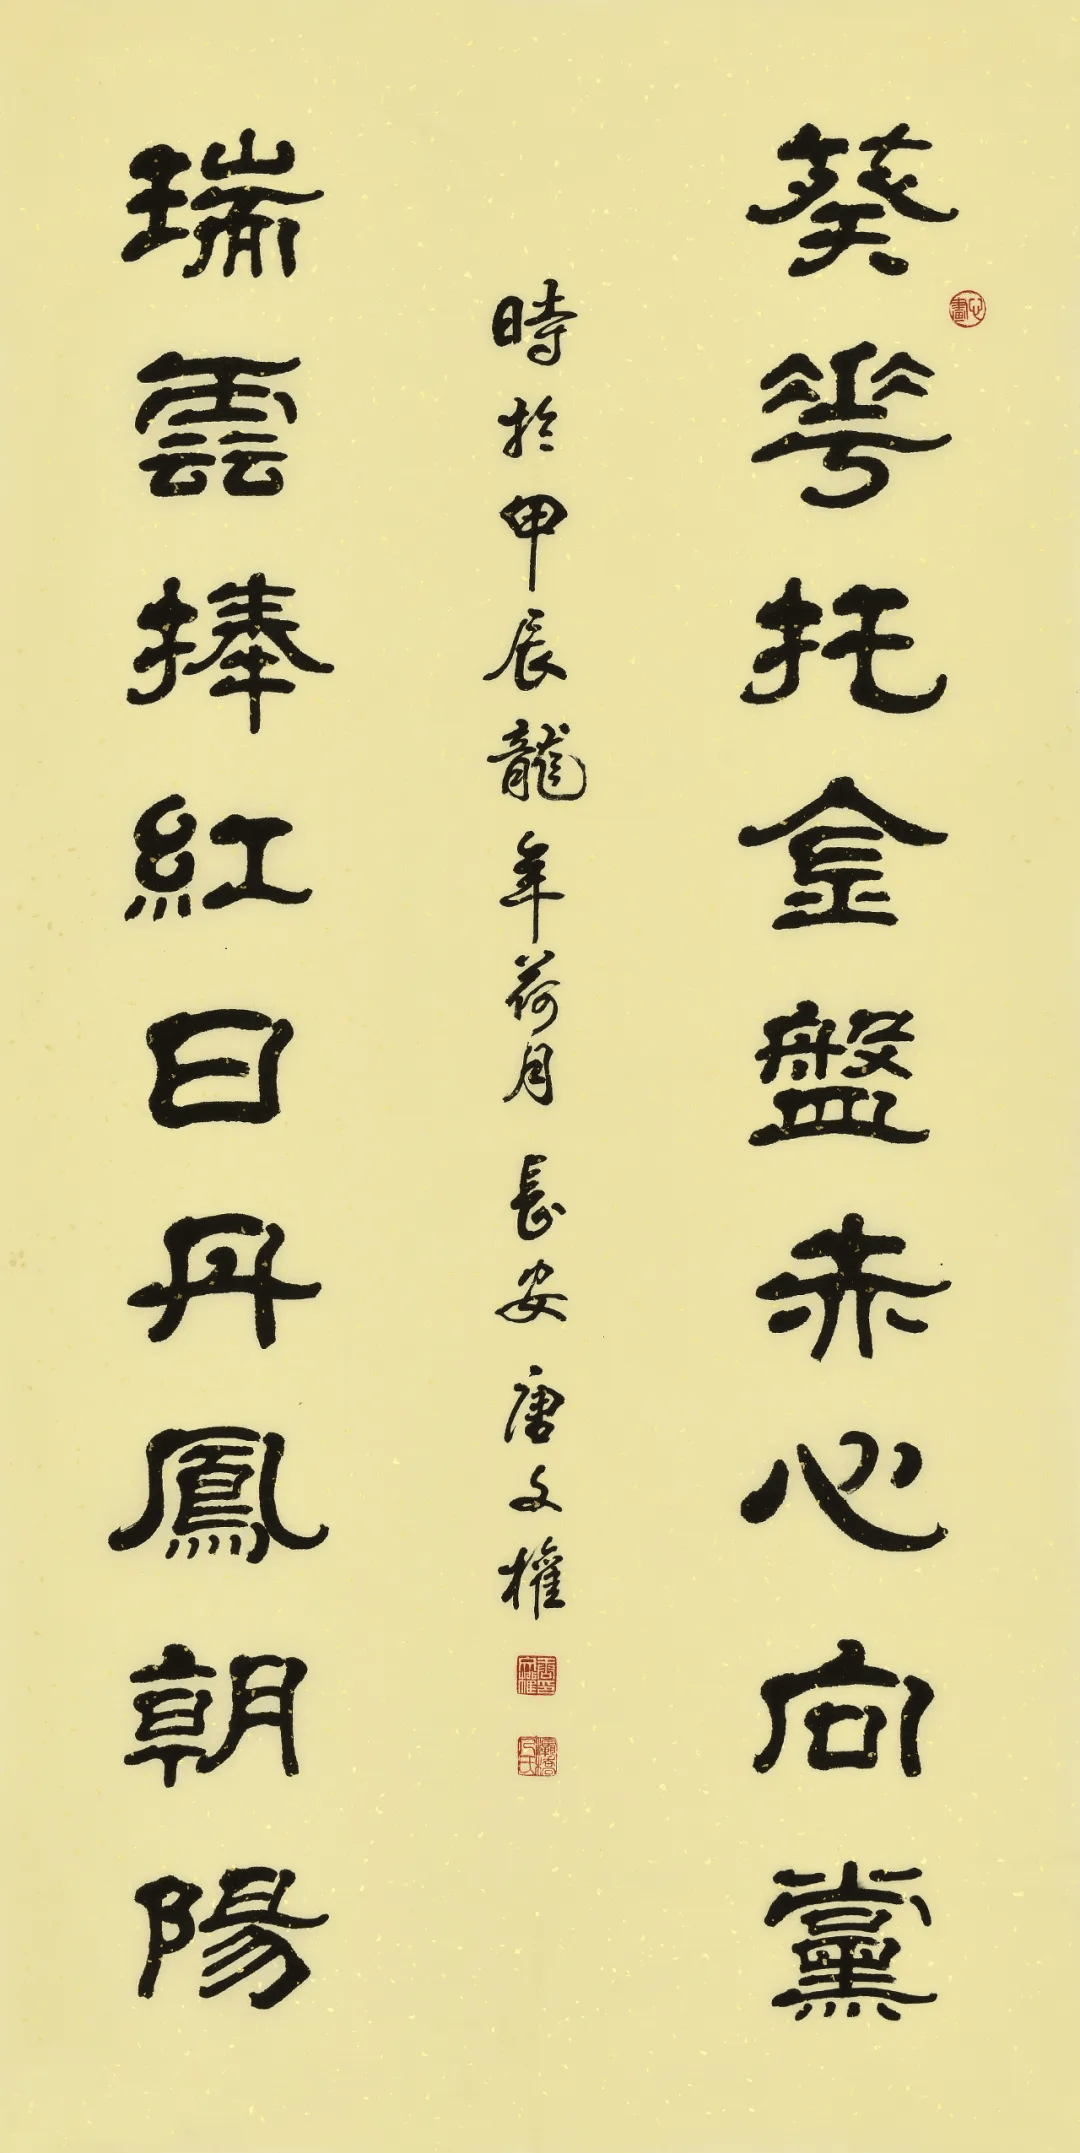 葵花托金盤赤心向黨
瑞雲捧紅日丹鳳朝陽
時於甲辰龍年荷月長安唐文權